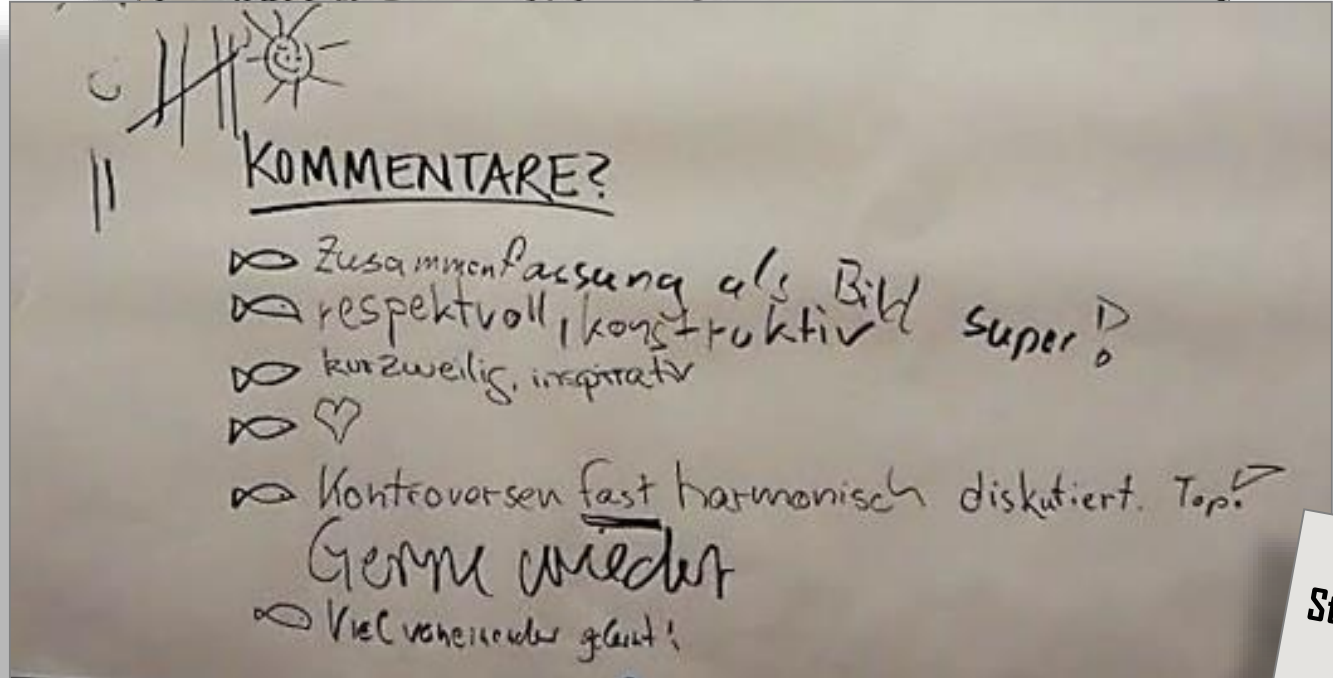 KOMMENTARE?
Zusammenfassung als Bild super!
respektvoll, konstruktiv
kurzweilig, inspirativ
♡
Kontroversen fast harmonisch diskutiert. Top!
Gerne wieder
Viel voneinander gelernt!